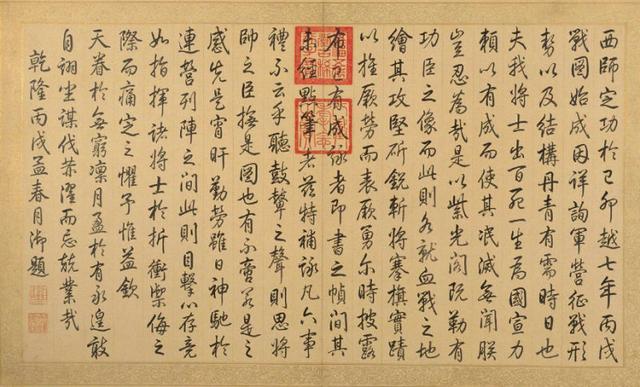 西師定功於己卯越七年丙戌
戰圖始成因詳詢軍營征戰形
勢以及結構丹青有需時日也
夫我將士出百死一生為國宣力
賴以有成而使其泯滅無聞朕
豈忍為哉是以紫光閣既勒有
功臣之像而此則各就血戰之地
繪其攻堅斫銳斬將搴旗實蹟
以旌厥勞而表厥勇爾時披露
布有成詠者即書之幀間其
未經點筆者茲特補詠凡六事
禮不云乎聽鼓鼙之聲則思將
帥之臣撫是圖也有不啻若是之
感先是宵旰勤勞雖日神馳於
連營列陣之間此則目擊心存竟
如指揮諸將士於折衝禦侮之
際而痛定之懼予惟益欽
天眷於無窮凜月盈於有永遑敢
自詡坐謀伐濯而忘兢業哉
乾隆丙戌孟春月御題